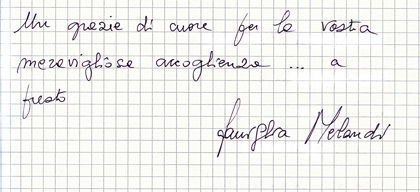 Un grazie di cuore per la vostra
meravigliosa accoglienza ... a
presto
Famiglia Melandri